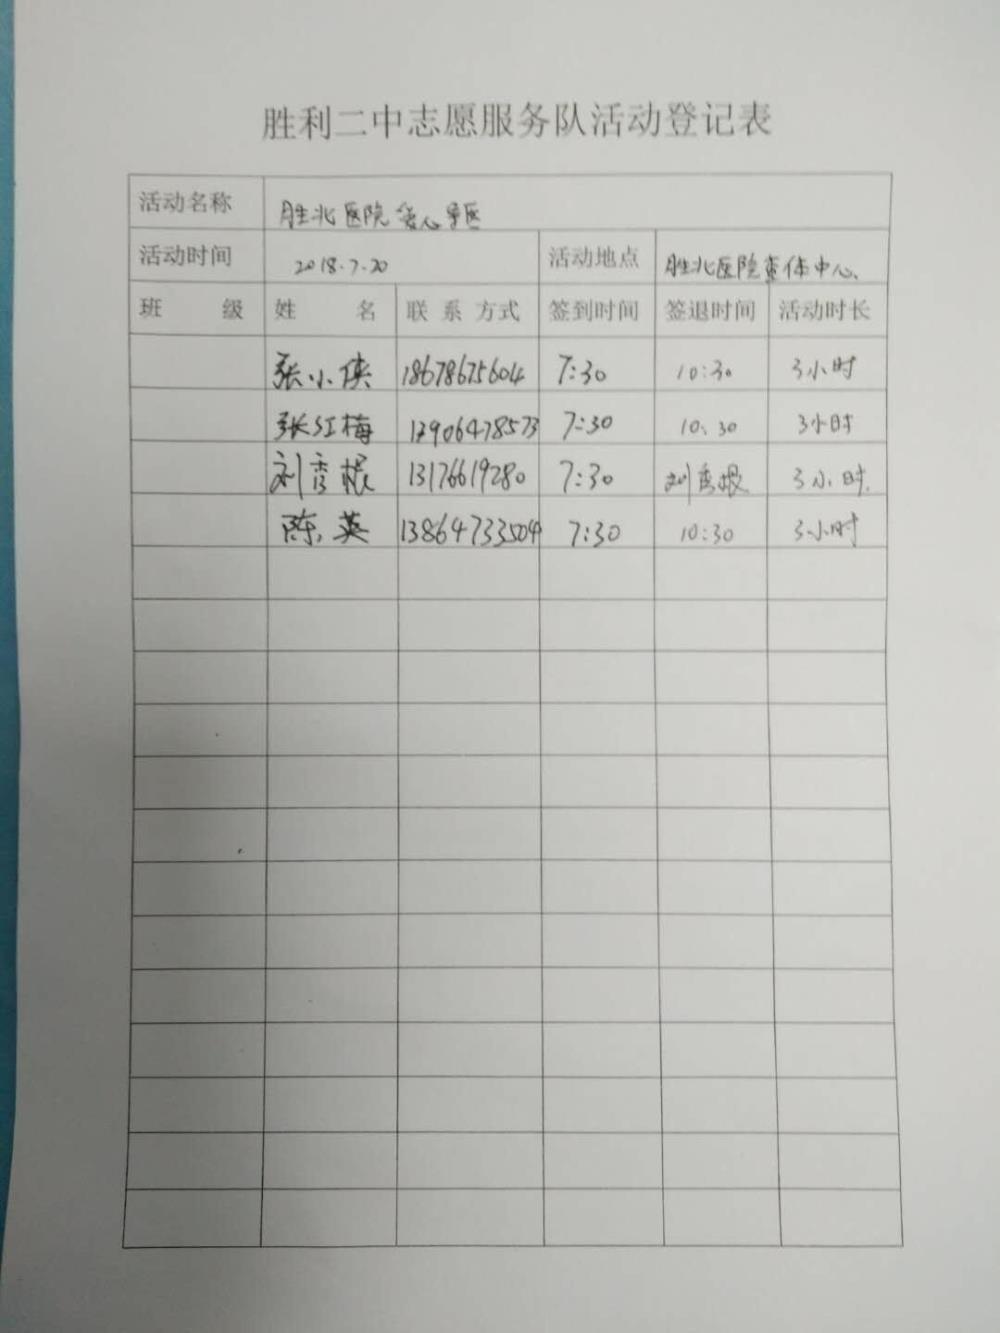 胜利二中志愿服务队活动登记表
活动名称 胜北医院爱心导医
活动时间 2018.7.20 活动地点 胜北医院查体中心
班 级 姓 名 联 系 方式 签到时间 签退时间 活动时长
张小侠 18678675604 7:30 10:30 3小时
张红梅 13906478573 7:30 10:30 3小时
刘秀根 13176619280 7:30 刘秀根 3小时.
陈英 13864733504 7:30 10:30 3小时